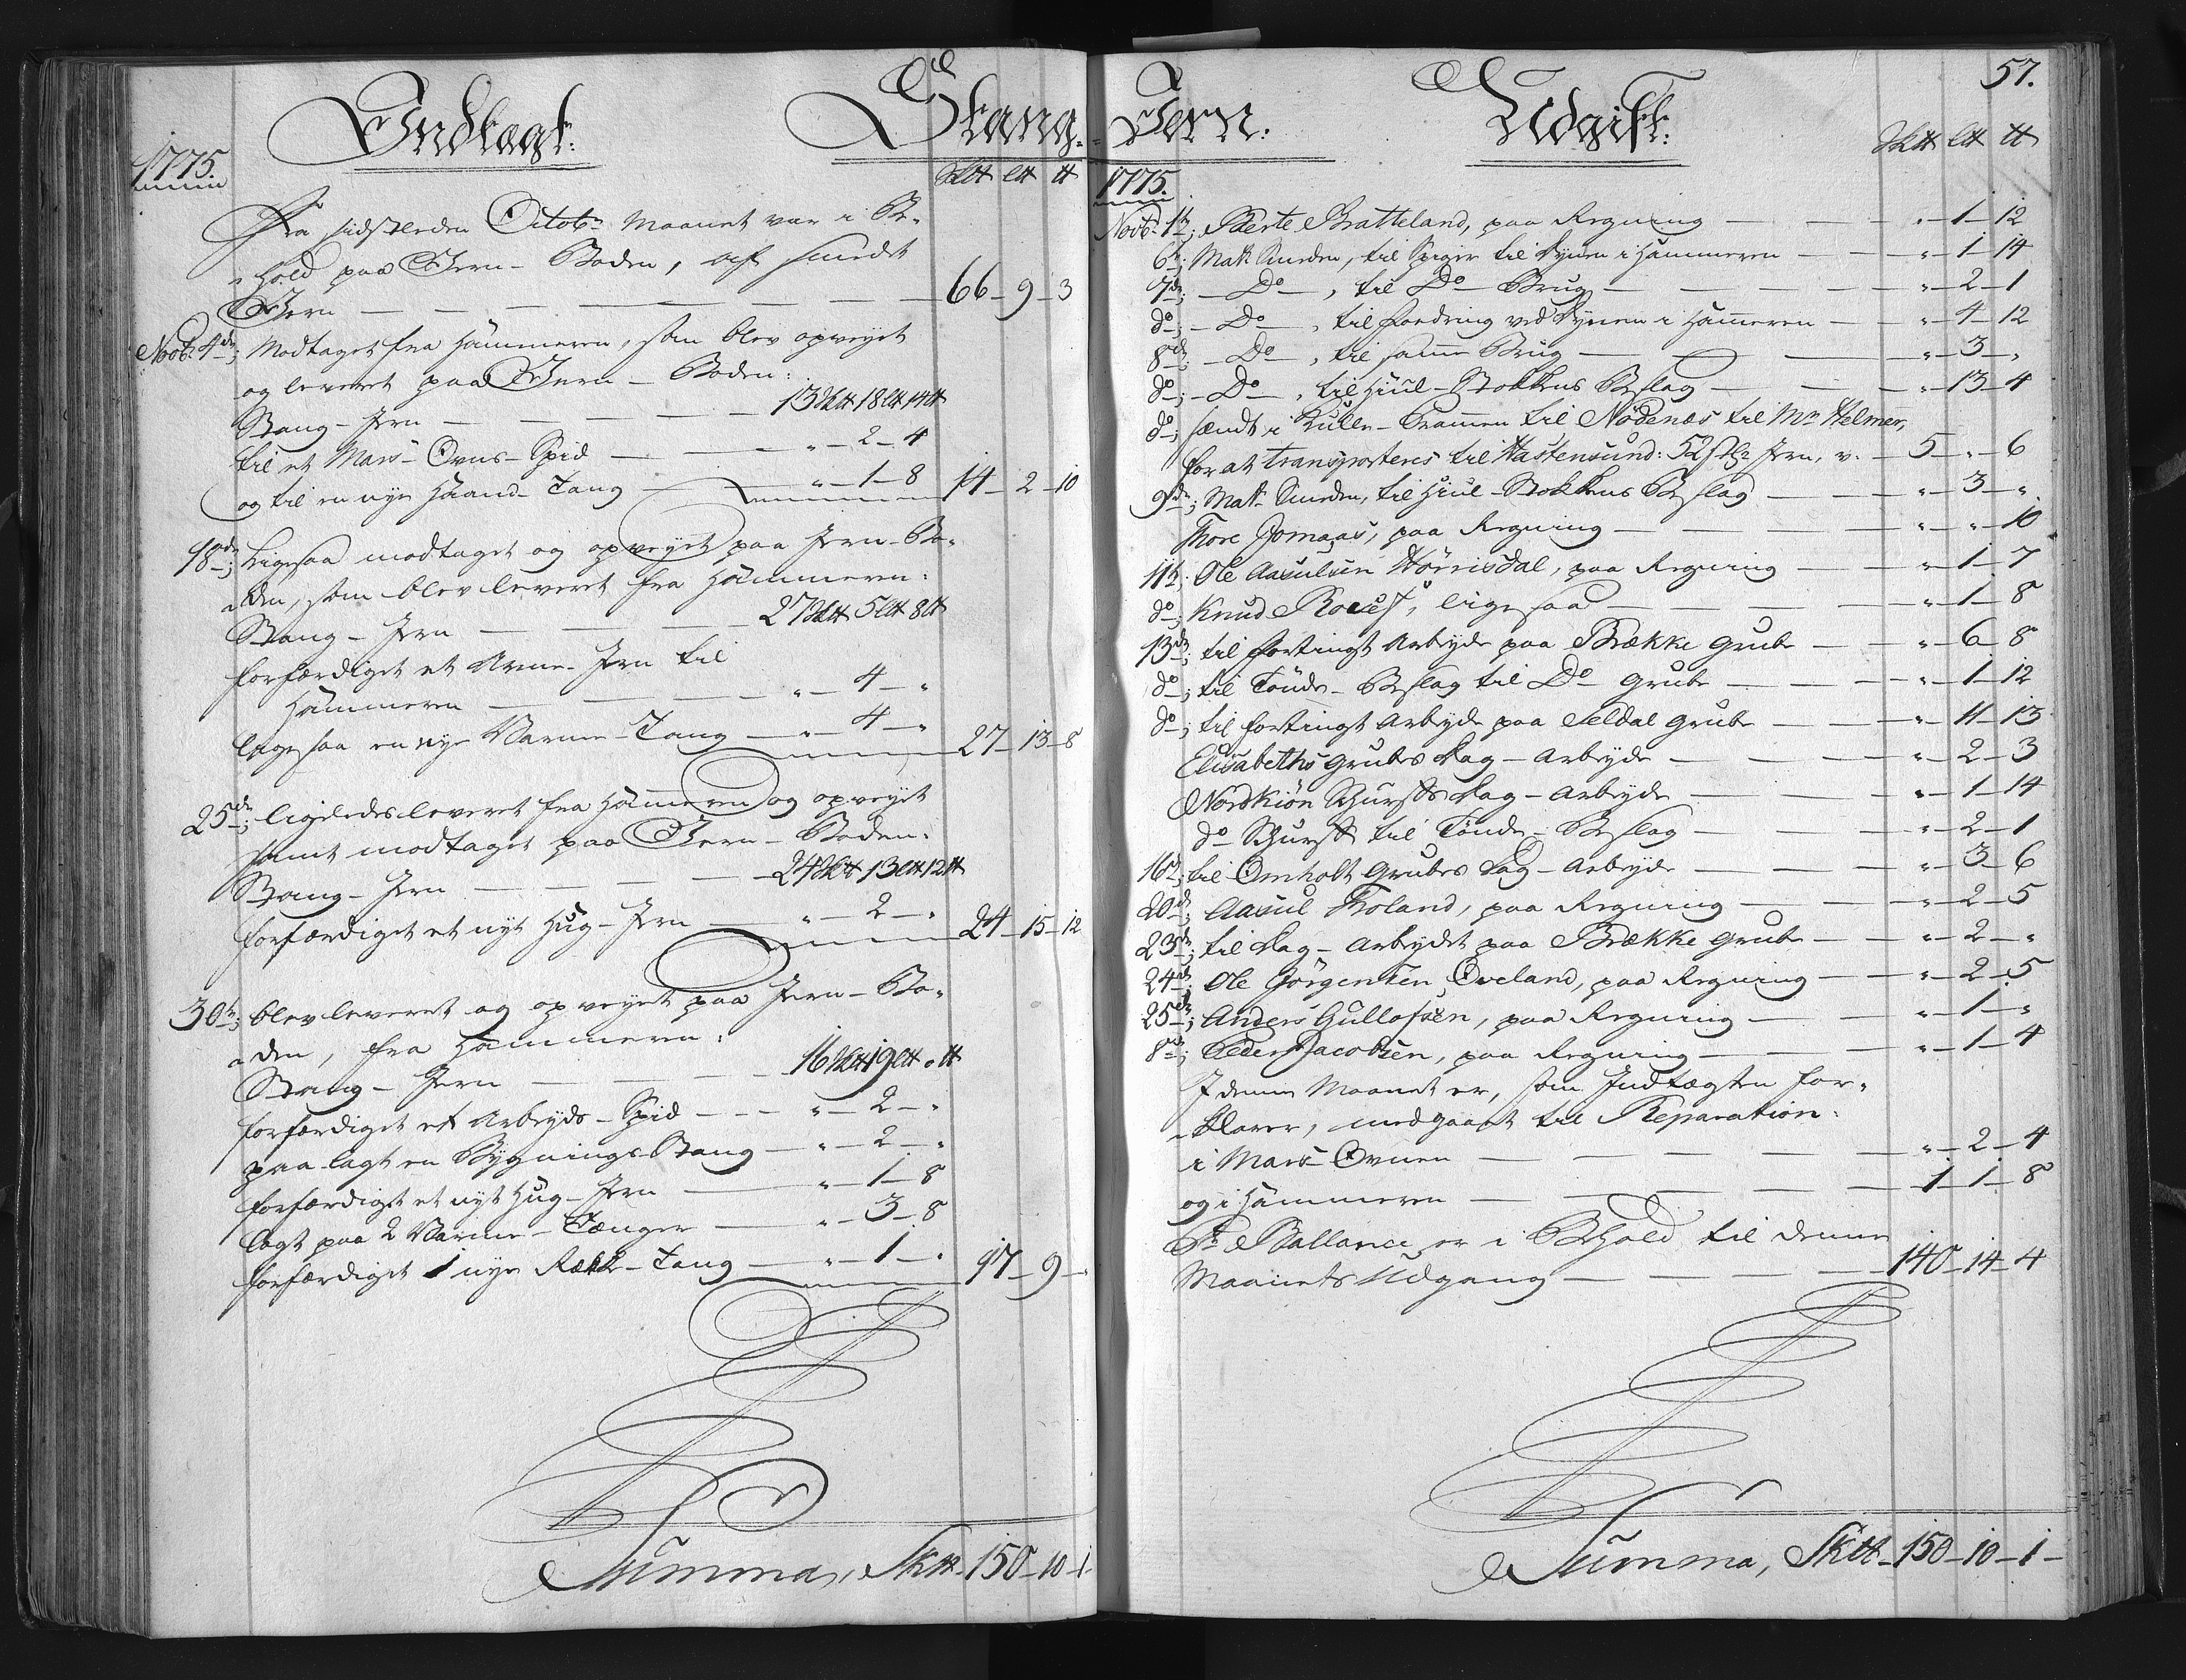 Indtægt:
Stang-
1775.
Sk℔ L℔ ℔
Fra sidstleden Octobr Maanet var i Be-
hold paa Jern-Boden, af smedt
Jern — 66 – 9 – 3
Novbr 4de; Modtaget fra Hammeren, som blev opveyet
og leveret paa Jern-Boden:
Stang-Jern — 13 Sk℔ 18 L℔ 14 ℔
til et Mars-Ovns-Spid — „ – 2 – 4
og til en nye Haand-Tang — „ – 1 – 8 14 – 2 – 10
18de; Ligesaa modtaget og opveyet paa Jern-Bo-
den, som blev leveret fra Hammeren:
Stang-Jern — 27 Sk℔ 5 L℔ 8 ℔
forfærdiget et Arme-Jern til
Hammeren — „ – 4 – „
ligesaa en nye Varme-Tang — „ – 4 – „ 27 – 13 – 8
25de; ligeledes leveret fra Hammeren og opveyet
samt modtaget paa Jern-Boden:
Stang-Jern — 24 Sk℔ 13 L℔ 12 ℔
forfærdiget et nyt Hug-Jern — „ – 2 – „ 24 – 15 – 12
30te; blev leveret og opveyet paa Jern-Bo-
den, fra Hammeren:
Stang-Jern — 16 Sk℔ 19 L℔ „ ℔
forfærdiget et Arbeyds-Spid — „ – 2 – „
paa lagt en Bygnings-Stang — „ – 2 – „
forfærdiget et nyt Hug-Jern — „ – 1 – 8
lagt paa 2 Varme-Tænger — „ – 3 – 8
forfærdiget 1 nye Række-Tang — „ – 1 – „ 17 – 9 – „
Summa, Sk℔ 150 – 10 – 1
57.
Jern.
Udgift:
Sk℔ L℔ ℔
1775.
Novbr 1te; Bierte Bratteland, paa Regning — „ – 1 – 12
6te; Mak Smeden, til Spiger til Dynen i Hammeren — „ – 1 – 14
7de; — Do —, til Do Brug — „ – 2 – 1
do; — Do —, til Foedring ved Dynen i Hammeren — „ – 4 – 12
8de — Do —, til samme Brug — „ – 3 – „
do; — Do —, til Hiul-Stokkens Beslag — „ – 13 – 4
do; sendt i Kulle-Prammen til Nødenæs til Mr Helmer,
for at transporteres til Hastensund: 52 st: Jern, v. — 5 – „ – 6
9de; Mak Smeden, til Hiul-Stokkens Beslag — „ – 3 – „
Thore Jomaas, paa Regning — „ – „ – 10
11te; Ole Aasulsen Hørrisdal, paa Regning — „ – 1 – 7
do; Knud Roest, ligesaa — „ – 1 – 8
13de; til fortingt Arbeyde paa Brække Grube — „ – 6 – 8
do; til Tønde-Beslag til Do Grube — „ – 1 – 12
do; til fortingt Arbeyde paa Seldal Grube — „ – 11 – 13
Elisabeths Grubes Dag-Arbeyde — „ – 2 – 3
Nordkiøn Schurfs Dag-Arbeyde — „ – 1 – 14
do Schurff til Tønde-Beslag — „ – 2 – 1
16de; til Omholt Grubes Dag-Arbeyde — „ – 3 – 6
20de; Aasul Froland, paa Regning — „ – 2 – 5
23de; til Dag-Arbeydet paa Brække Grube — „ – 2 – „
24de; Ole Jörgensen Oveland, paa Regning — „ – 2 – 5
25de; Anders Gullofsen, paa Regning — „ – 1 – „
8de; Peder Jacobsen, paa Regning — „ – 1 – 4
I denne Maanet er, som Indtægten for-
klarer, medgaaet til Reparation:
i Mars-Ovnen — „ – 2 – 4
og i Hammeren — 1 – 1 – 8
Pr Ballance er i Behold til denne
Maanets Udgang — 140 – 14 – 4
Summa, Sk℔ – 150 – 10 – 1 –